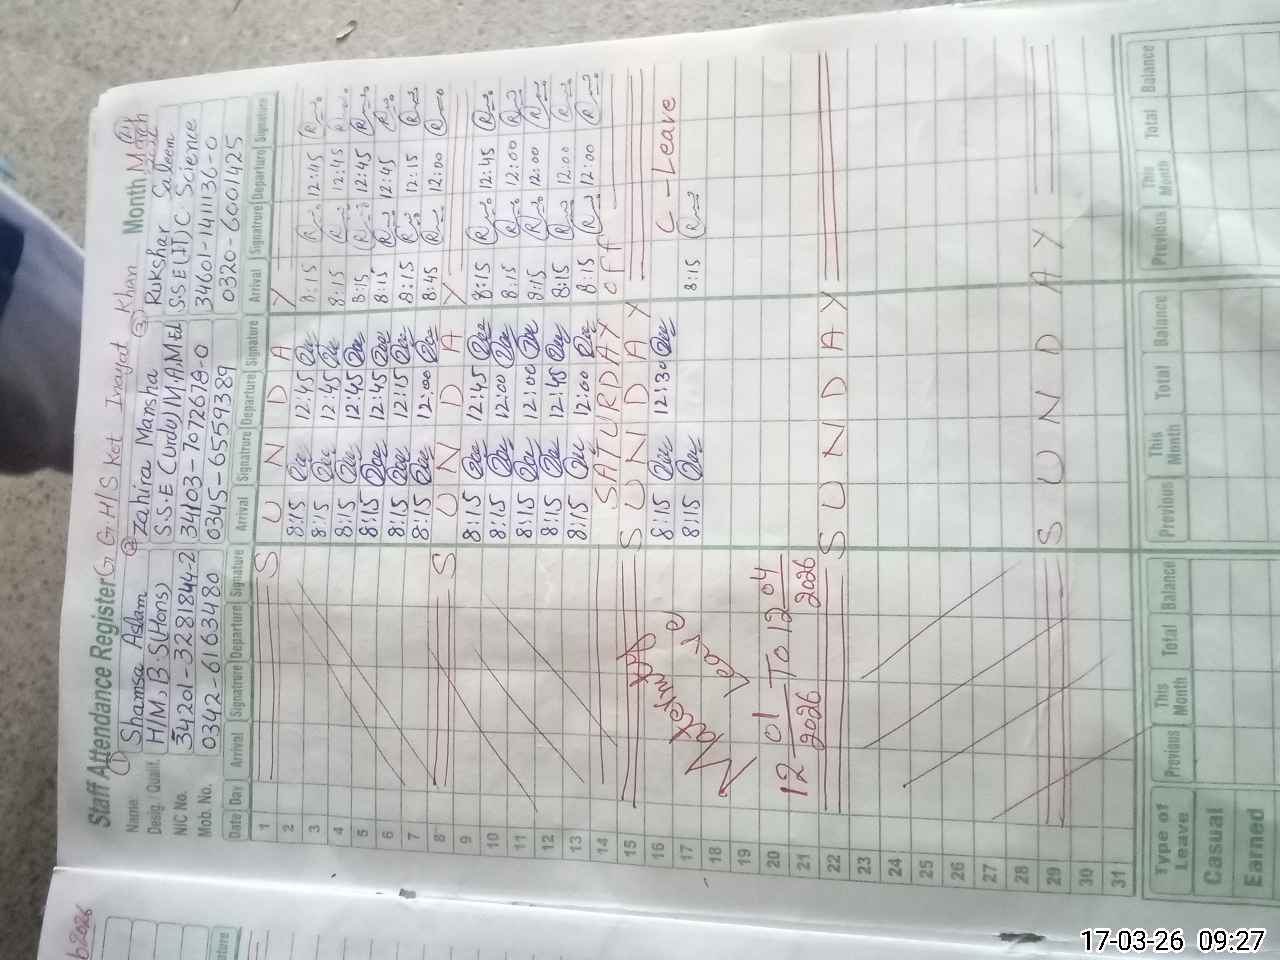 Staff Attendance Register G.G.H/S Kot Inayat Khan Month: March
Name: ① Shamsa Aslam ② Zahira Mansha ③ Rukshar Saleem
Desig./Qualif. H/M, B.S(Hons) S.S.E (Urdu) M.A M.Ed S.S.E(IT) C Science
NIC No. 34201-3281844-2 34103-7072678-0 34601-1411136-0
Mob. No. 0342-6163480 0345-6559389 0320-6001425
Date Day Arrival Signatrure Departure Signature Arrival Signatrure Departure Signature Arrival Signatrure Departure Signature
1 S U N D A Y
2 8:15 12:45 8:15 12:45
3 8:15 12:45 8:15 12:45
4 8:15 12:45 8:15 12:45
5 8:15 12:45 8:15 12:45
6 8:15 12:15 8:15 12:15
7 8:15 12:00 8:45 12:00
8 S U N D A Y
9 8:15 12:45 8:15 12:45
10 8:15 12:00 8:15 12:00
11 8:15 12:00 8:15 12:00
12 8:15 12:45 8:15 12:00
13 8:15 12:00 8:15 12:00
14 SATURDAY off
15 S U N D A Y
16 Maternity 8:15 12:30 C-Leave
17 Leave 8:15 8:15
18
19
20 12-01/2026 To 12 04/2026
21
22 S U N D A Y
23
24
25
26
27
28
29 S U N D A Y
30
31
Type of Leave Previous This Month Total Balance Previous This Month Total Balance Previous This Month Total Balance
Casual
Earned
b 2026
ature
17-03-26 09:27